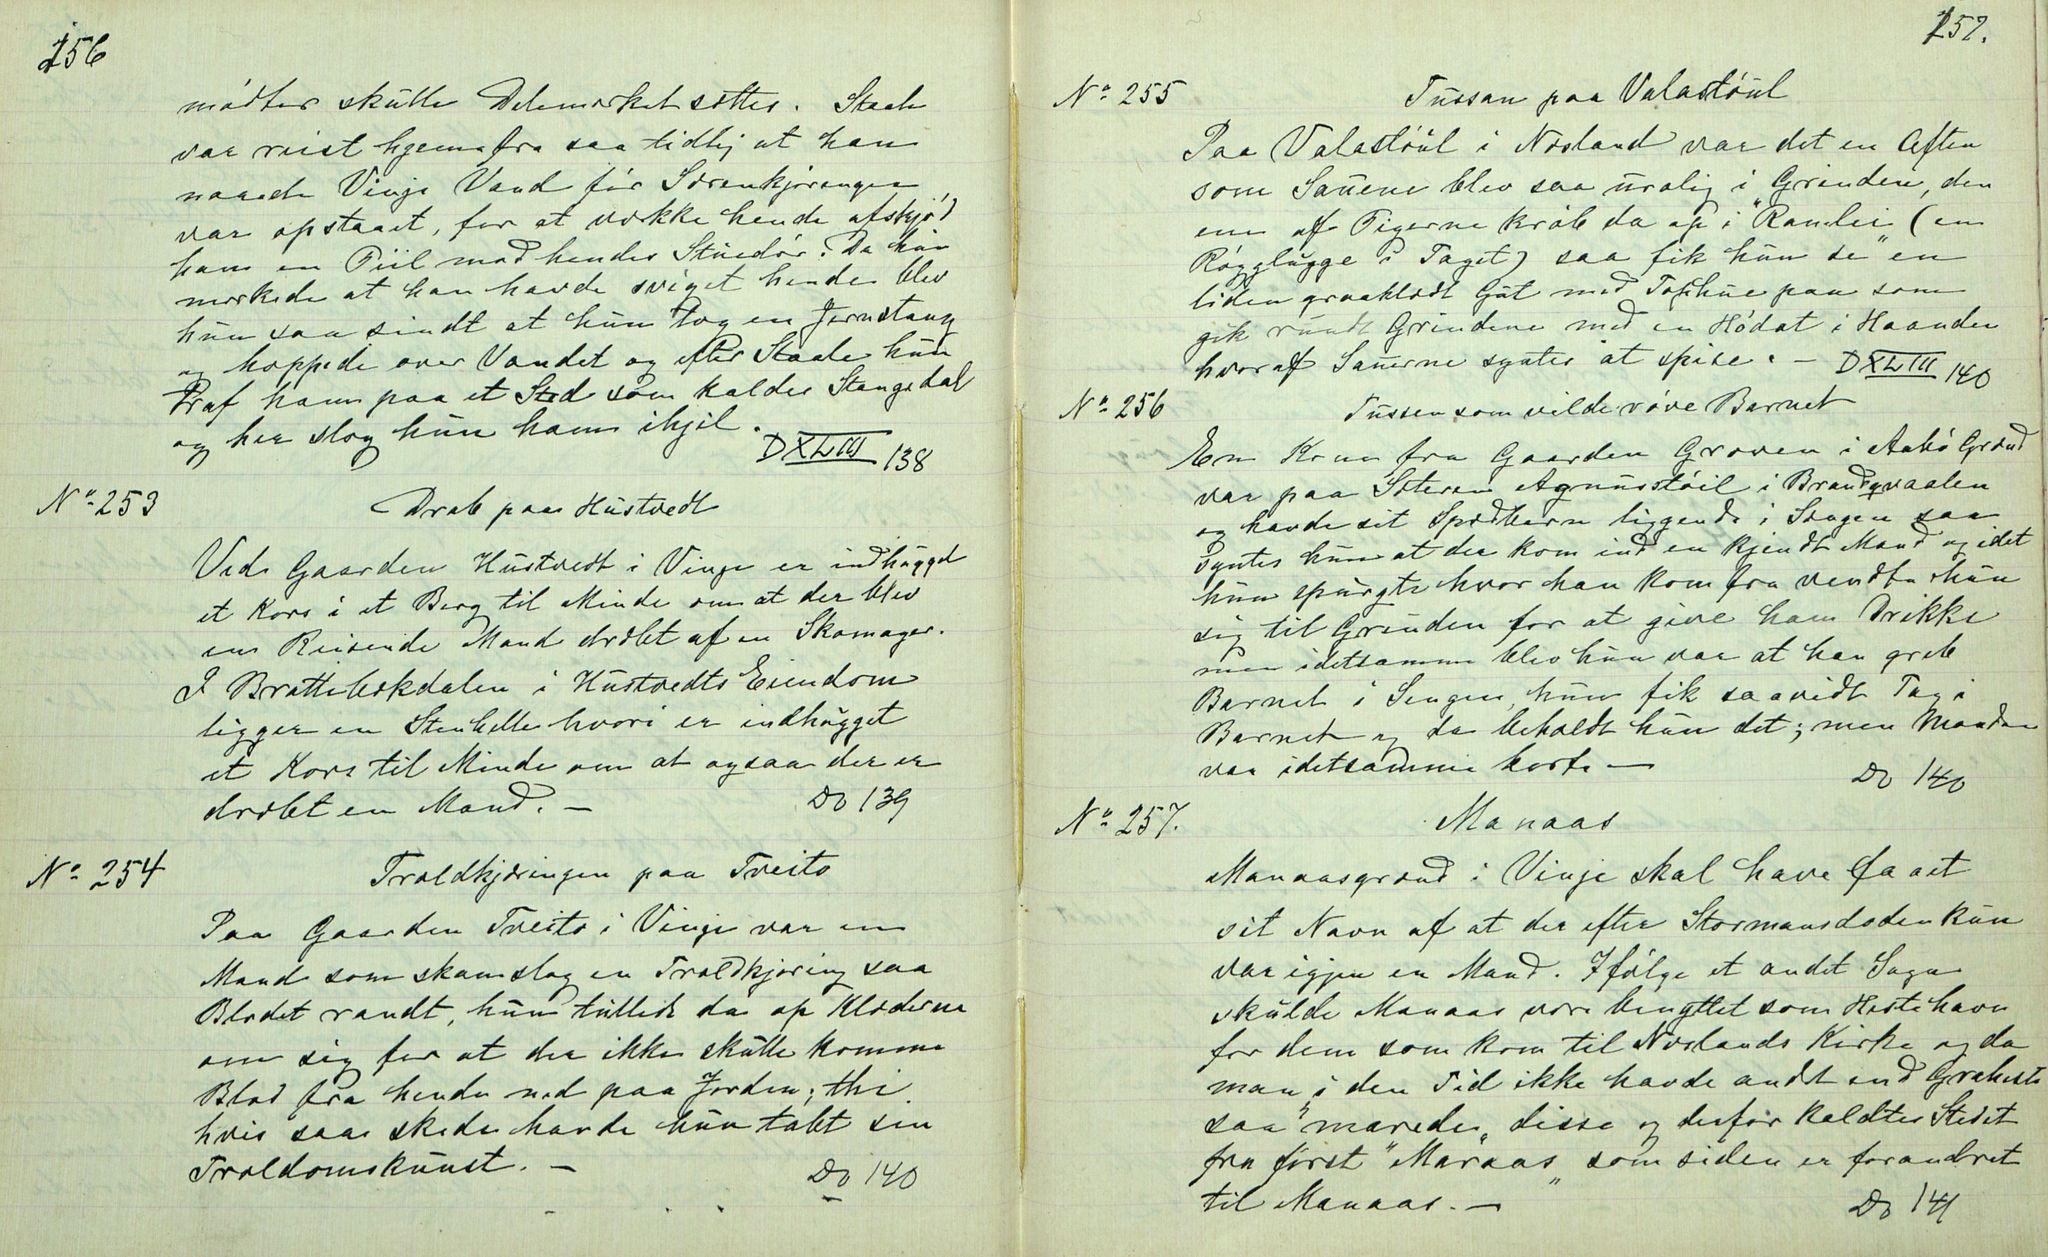 156
mödtes skulle Delemærket sættes. Staale
var reist hjemmefra saa tidlig at han
naaede Vinje Vand før Sørenkjæringen
var opstaaet, for at vække hende afskjød
han en Piil mod hendes Stuedør. Da hun
mærkede at han havde sviget hende blev
hun saa sindt at hun tog en Jernstang
og hoppede over Vandet og efter Staale hun
Traf ham paa et Sted som kaldes Stangsdal
og her slog hun ham ihjel.
DXLIII 138
No 253
Drab paa Hustvedt
Ved Gaarden Hustvedt i Vinje er indhugget
et Kors i et Berg til Minde om at der blev
en Reisende Mand dræbt af en Skomager.
I Brattebækdalen i Hustvedts Eiendom
ligger en Stenhelle hvori er indhugget
et Kors til Minde om at ogsaa der er
dræbt en Mand. —
Do 139
No 254
Troldkjæringen paa Tveito
Paa Gaarden Tveito i Vinje var en
Mand som skamslog en Troldkjæring saa
Blodet randt, hun tullede da op Klæderne
om sig for at der ikke skulle komme
Blod fra hende ned paa Jorden; thi
hvis saa skede havde hun tabt sin
Troldomskunst. —
Do 140
157.
No 255
Tussan paa Valastöul
Paa Valastöul i Nesland var det en Aften
som Sauene blev saa urolig i Grinden, den
ene af Pigerne kröb da op i "Ranlei (en
Rögglugge i Taget) saa fik hun se" en
liden graaklædt Gut med Tophue paa som
gik rundt Grindene med en Hödot i Haanden
hvoraf Sauerne syntes at spise. —
DXLIII 140
No 256
Tussen som vilde röve Barnet
En Kone fra Gaarden Groven i Aabö Grænd
var paa Sæteren Agnusstöil i Brandqvaalen
og havde sit Spædbarn liggende i Sengen saa
Syntes hun at der kom ind en kjendt Mand og idet
hun spurgte hvor han kom fra vendte hun
sig til Grinden for at give ham Drikke
men idetsamme blev hun var at han greb
Barnet i Sengen, hun fik saavidt Tag i
Barnet og da beholdt hun det; men Manden
var idetsamme borte —
Do 140
No 257.
Manaas
Manaasgrænd i Vinje skal have faaet
sit Navn af at der efter Stormansdøden kun
var igjen en Mand. Ifølge et andet Sagn
skulde Manaas være benyttet som Hestehavn
for dem som kom til Neslands Kirke og da
man i den Tid ikke havde andt end Graheste
saa "marede" disse og derfor kaldtes Stedet
fra først "Maraas" som siden er forandret
til Manaas. —
Do 141